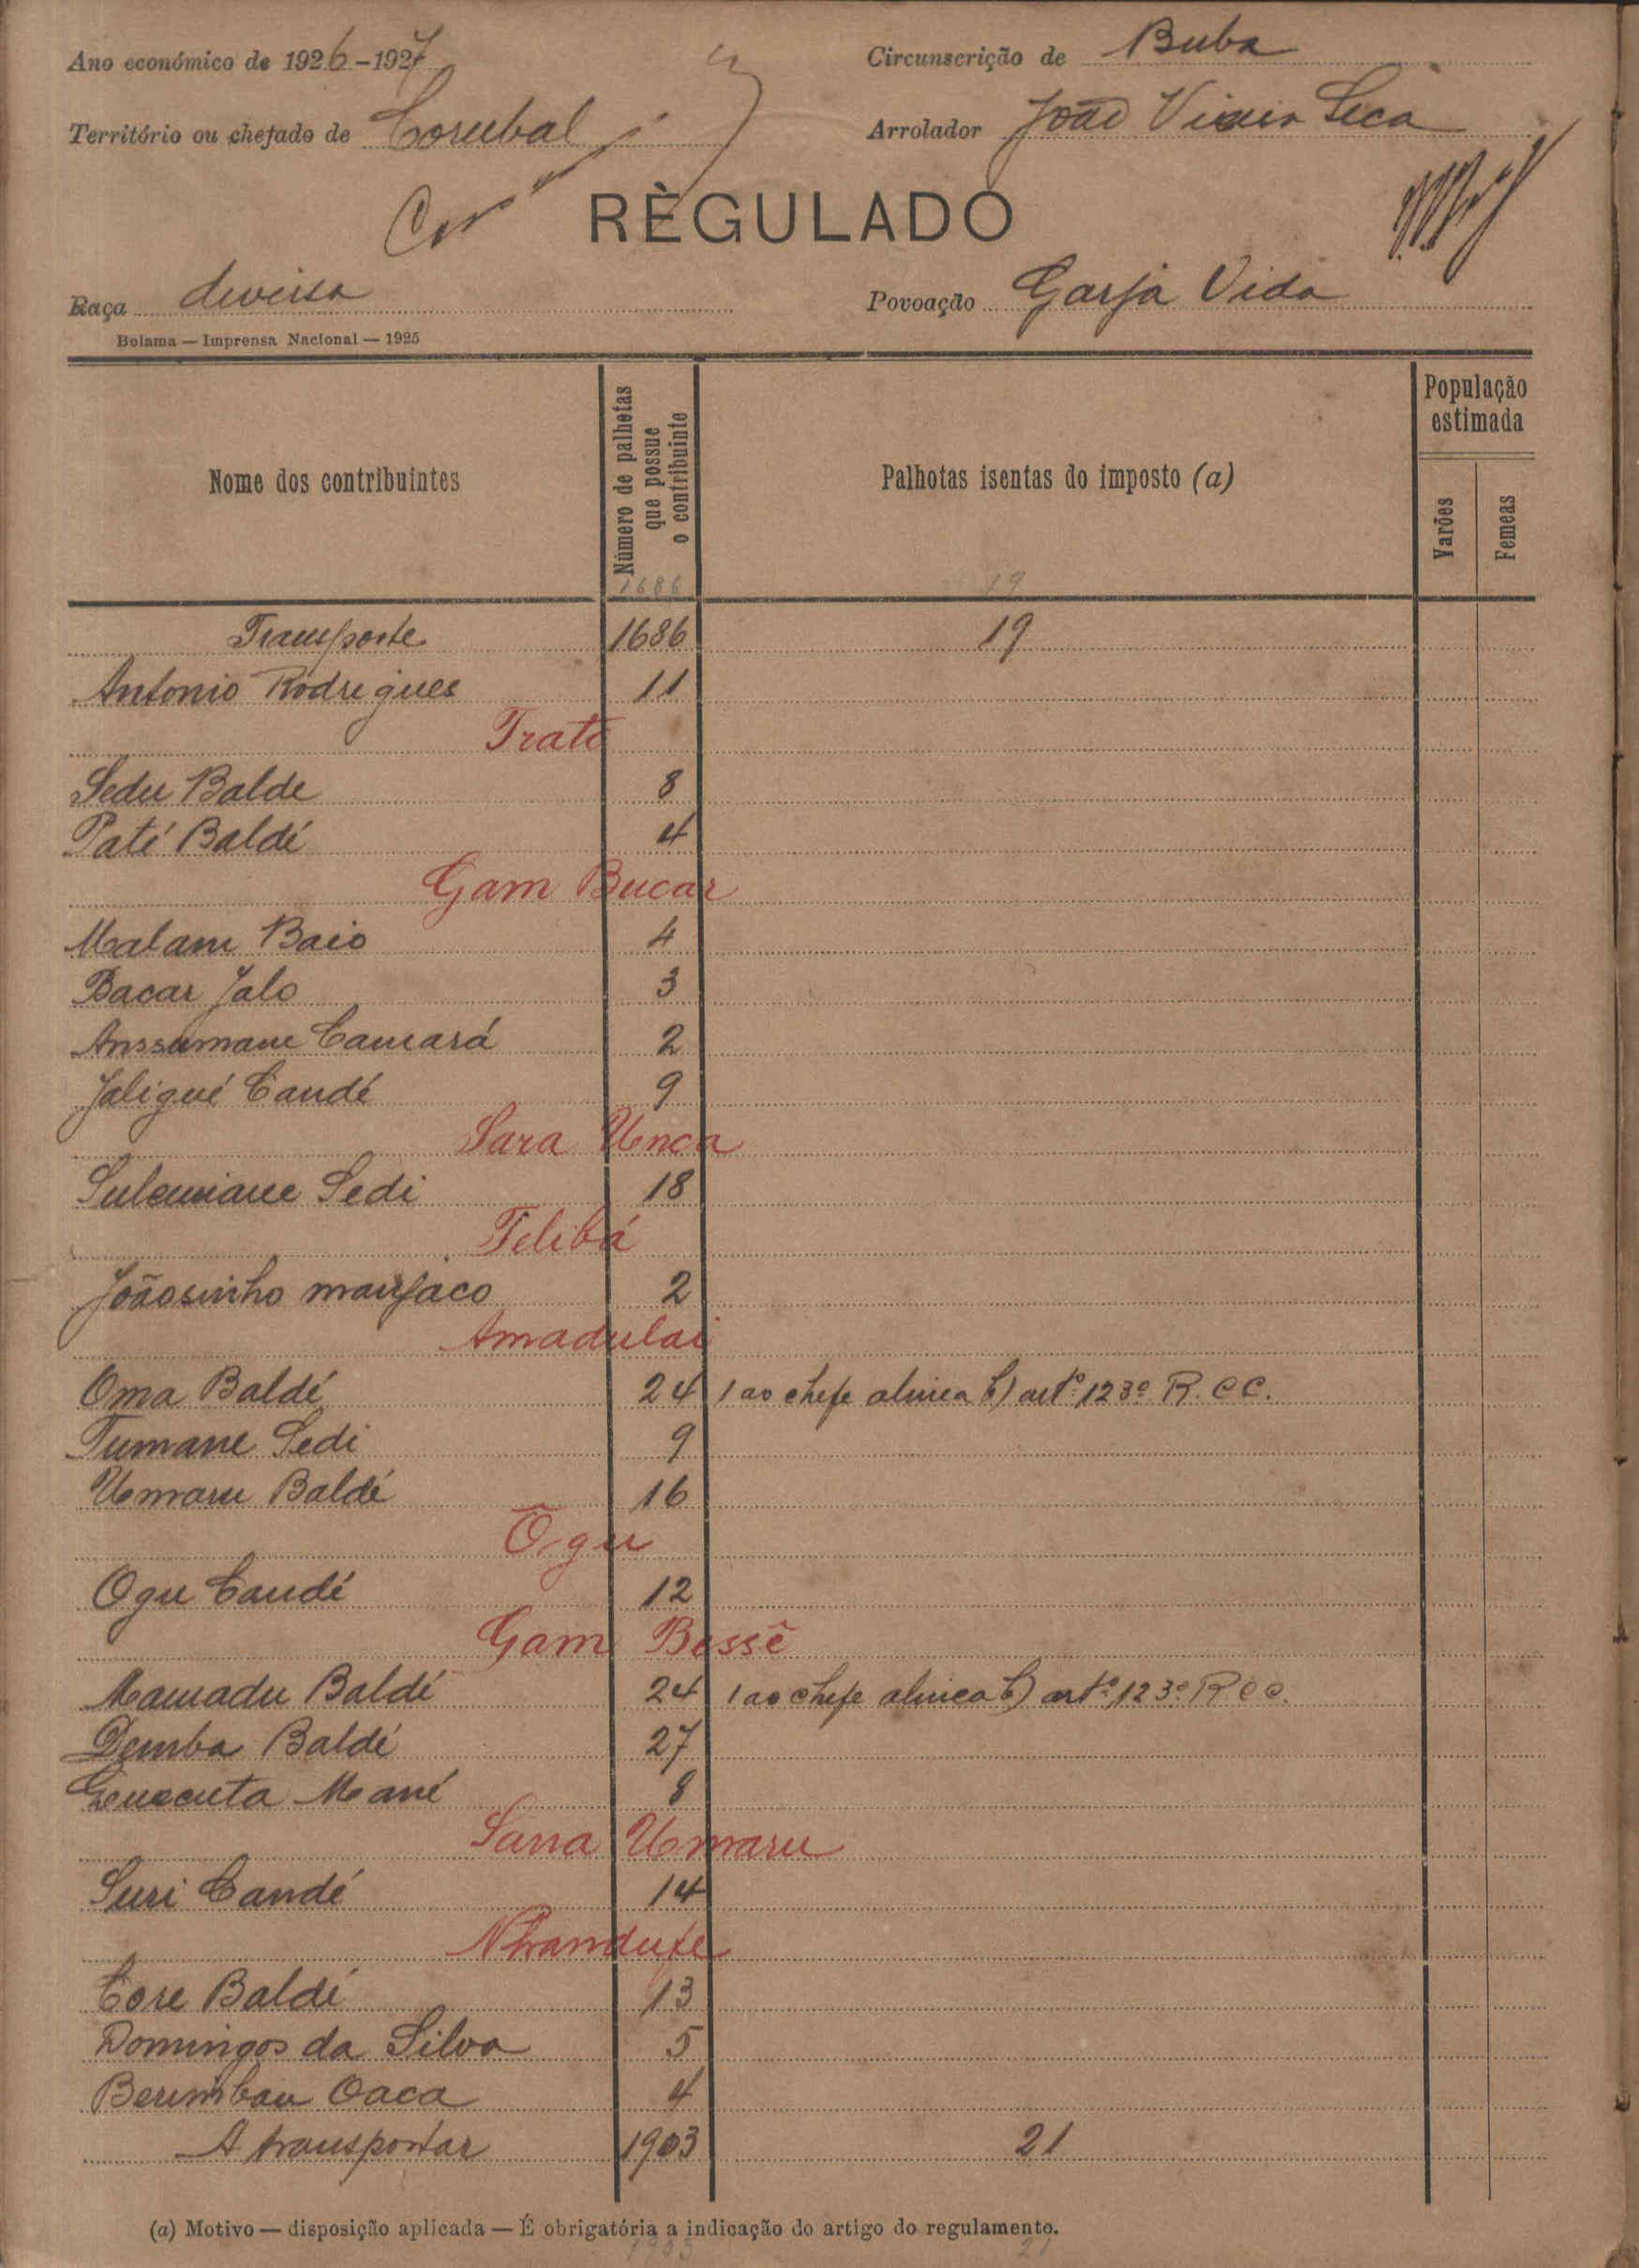 Ano económico de 1926-1927
Circunscrição de Buba
Território ou chefado de Corubal
Arrolador João Vieira Seca
RÈGULADO
Raça diversa
Povoação Garja Vida
Bolama — Imprensa Nacional — 1925
Nome dos contribuintes
Número de palhetas que possue o contribuinte
Palhotas isentas do imposto (a)
População estimada
Varões
Femeas
1686 19
Transporte 1686 19
Antonio Rodrigues 11
Trate
Sedu Balde 8
Paté Baldé 4
Gam Bucar
Malam Baio 4
Bacar Jalo 3
Anssumane Camará 2
Jaligué Candé 9
Sara Unca
Sulemane Sedi 18
Telibá
Joãosinho manjaco 2
Amadulai
Oma Baldé 24 1 ao chefe alinea b) artº 123º R. C C.
Tumane Sedi 9
Umaru Baldé 16
Ôgu
Ogu Candé 12
Gam Bessê
Mamadu Baldé 24 1 ao chefe alinea b) artº 123º R C C.
Demba Baldé 27
Mané 8
Sarra Umaru
Suri Candé 14
Nhandufe
Core Baldé 13
Domingos da Silva 5
Berimbau Oaca 4
A transportar 1903 21
(a) Motivo — disposição aplicada — É obrigatória a indicação do artigo do regulamento.
1903 21